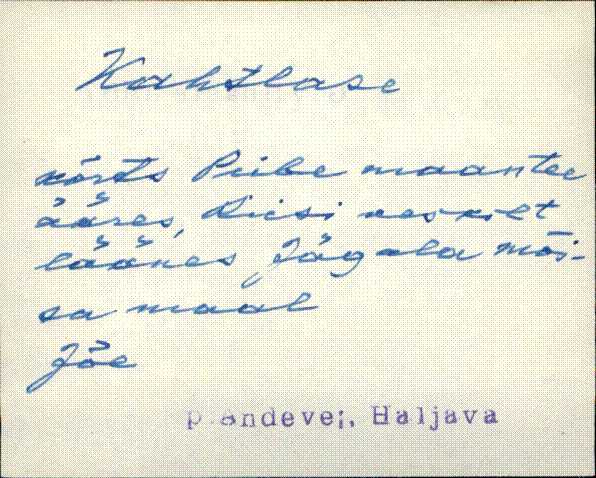 Kahtlase
kõrts Piibe maantee
ääres, Kiisi veskilt
läänes Jägala mõi-
sa maal
Jõe
P. Andevei, Haljava